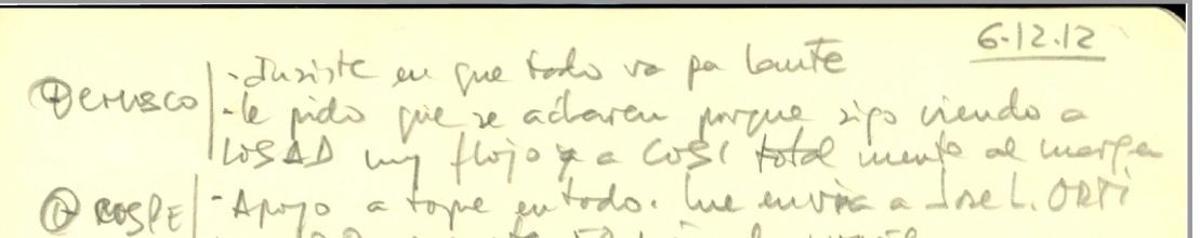 6.12.12
- Insiste en que todo va pa lante
CHUSCO - le pido que se aclaren porque sigo viendo a
COSAD muy flojo y a COSI totalmente al margen
COSPE - Apoyo a tope en todo. Me envia a Jose L. ORTI